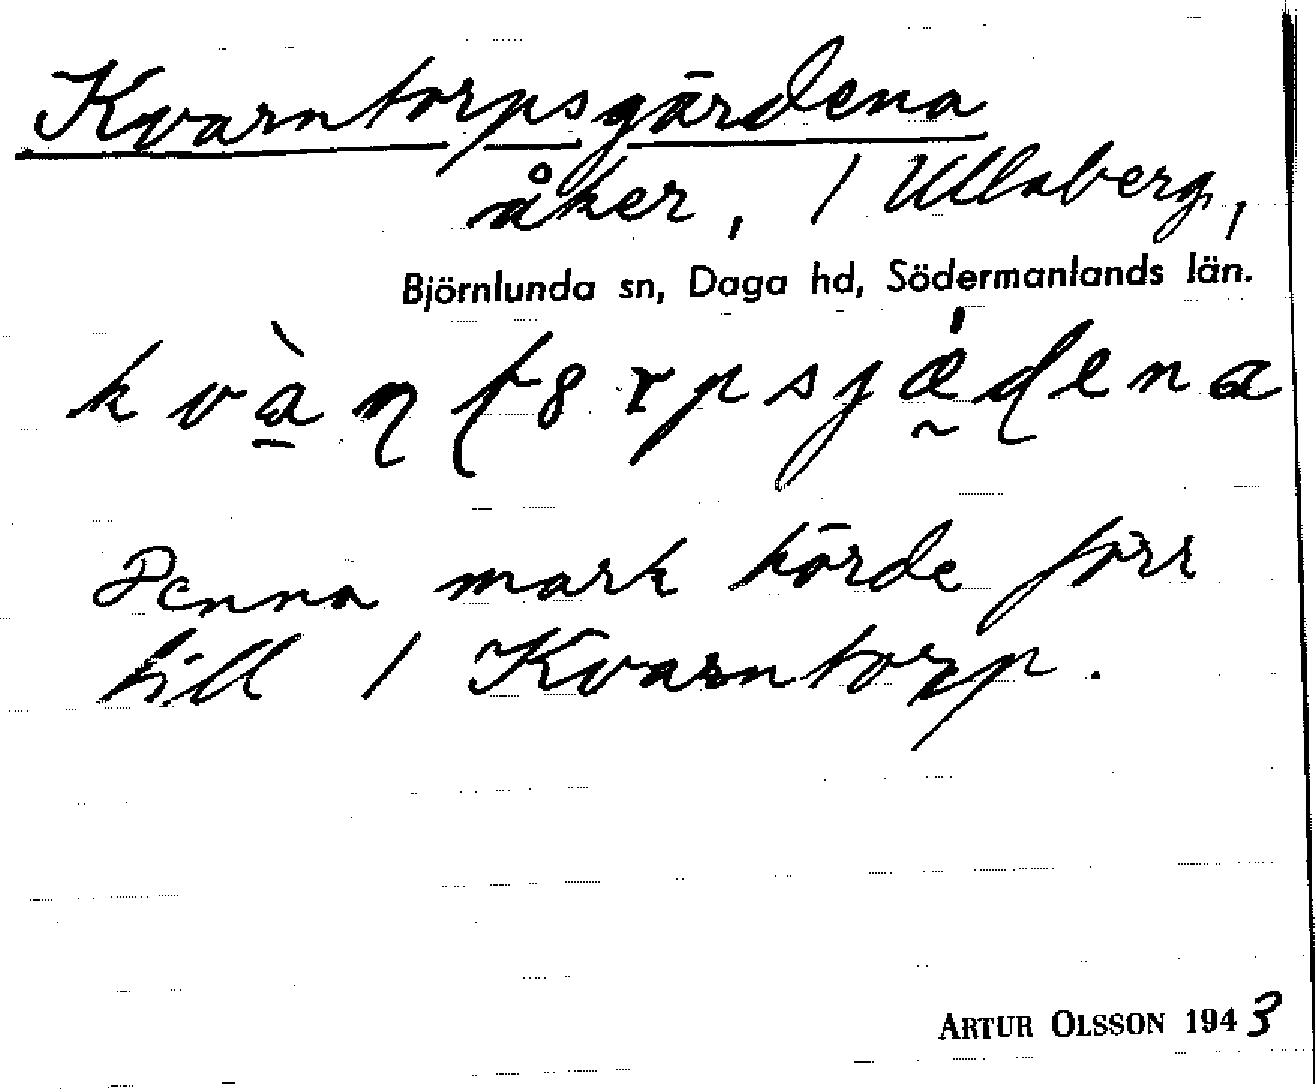 Kvarntorpsgärdena
åker, / Ullaberg,
Björnlunda sn, Daga hd, Södermanlands län.
Denna mark hörde förr
till / Kvarntorp.
ARTUR OLSSON 1943